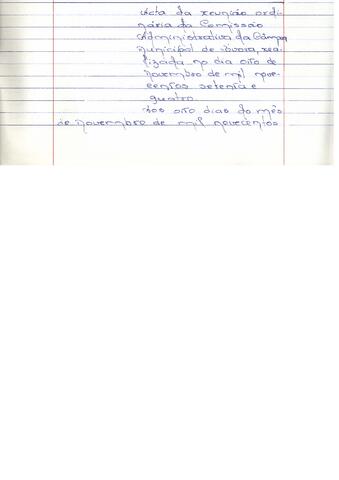 Acta da reunião ordi-
nária da Comissão
Administrativa da Câmara
Municipal de Évora, rea-
lizada no dia oito de
Novembro de mil nove-
centos setenta e
quatro
Aos oito dias do mês
de Novembro de mil novecentos